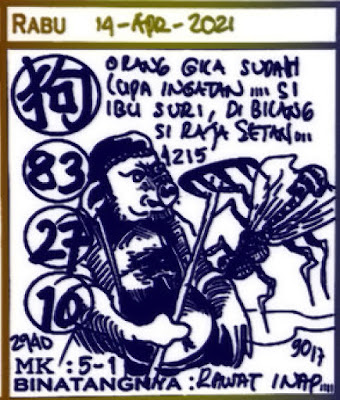 RABU 14-APR-2021
狗
ORANG GILA SUDAH
LUPA INGATAN.... SI
IBU SURI, DI BILANG
SI RAJA SETAN...
1215
83
27
10
2940
9017
MK : 5-1
BINATANGNYA : RAWAT INAP....